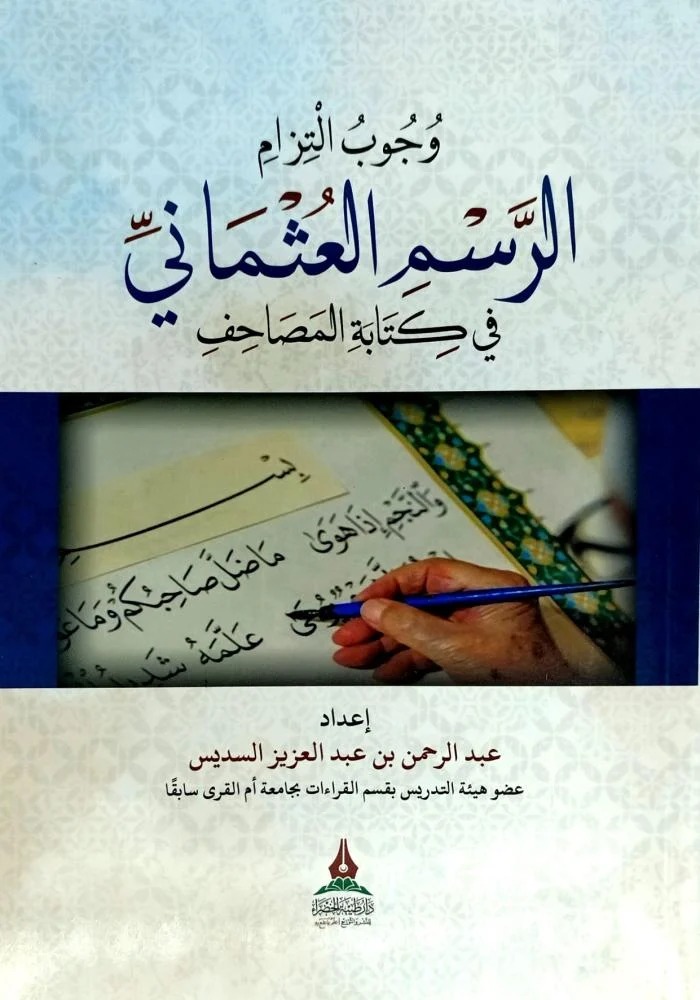 وُجُوبُ الْتِزامِ
الرَّسْمِ العُثْمَانيِّ
في كِتَابَةِ المَصَاحِفِ
بِسْمِ
وَالنَّجْمِ إِذَا هَوَىٰ
مَا ضَلَّ صَاحِبُكُمْ وَمَا
عَلَّمَهُ شَدِيدُ
إعداد
عبد الرحمن بن عبد العزيز السديس
عضو هيئة التدريس بقسم القراءات بجامعة أم القرى سابقًا
دار طيبة الخضراء